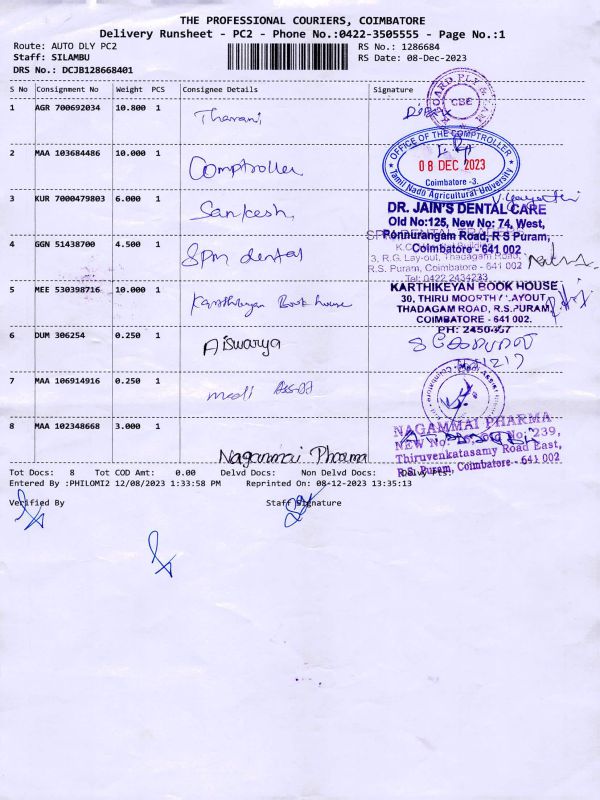 THE PROFESSIONAL COURIERS, COIMBATORE
Delivery Runsheet - PC2 - Phone No.:0422-3505555 - Page No.:1
Route: AUTO DLY PC2 RS No.: 1286684
Staff: SILAMBU RS Date: 08-Dec-2023
DRS No.: DCJB128668401
S No Consignment No Weight PCS Consignee Details Signature
1 AGR 700692034 10.800 1 Tharani
CBE
2 MAA 103684486 10.000 1 Comptroller
OFFICE OF THE COMPTROLLER
08 DEC 2023
Coimbatore -3
Tamil Nadu Agricultural University
3 KUR 7000479803 6.000 1 Sankesh
DR. JAIN'S DENTAL CARE
Old No:125, New No: 74, West,
Ponnurangam Road, R S Puram,
Coimbatore - 641 002
4 GGN 51438700 4.500 1 Spm dental
3, R.G. Lay-out, Thadagam Road,
R.S. Puram, Coimbatore - 641 002
Tel: 0422 2434233
5 MEE 530398716 10.000 1 Karthikeyan Book house
KARTHIKEYAN BOOK HOUSE
30, THIRU MOORTHY LAYOUT
THADAGAM ROAD, R.S.PURAM,
COIMBATORE - 641 002.
6 DUM 306254 0.250 1 Aiswarya
7 MAA 106914916 0.250 1
8 MAA 102348668 3.000 1 Nagammai Pharma
NAGAMMAI PHARMA
NEW No: 239,
Thiruvenkatasamy Road East,
R.S. Puram, Coimbatore - 641 002
Tot Docs: 8 Tot COD Amt: 0.00 Delvd Docs: Non Delvd Docs:
Entered By :PHILOMI2 12/08/2023 1:33:58 PM Reprinted On: 08-12-2023 13:35:13
Verified By Staff Signature